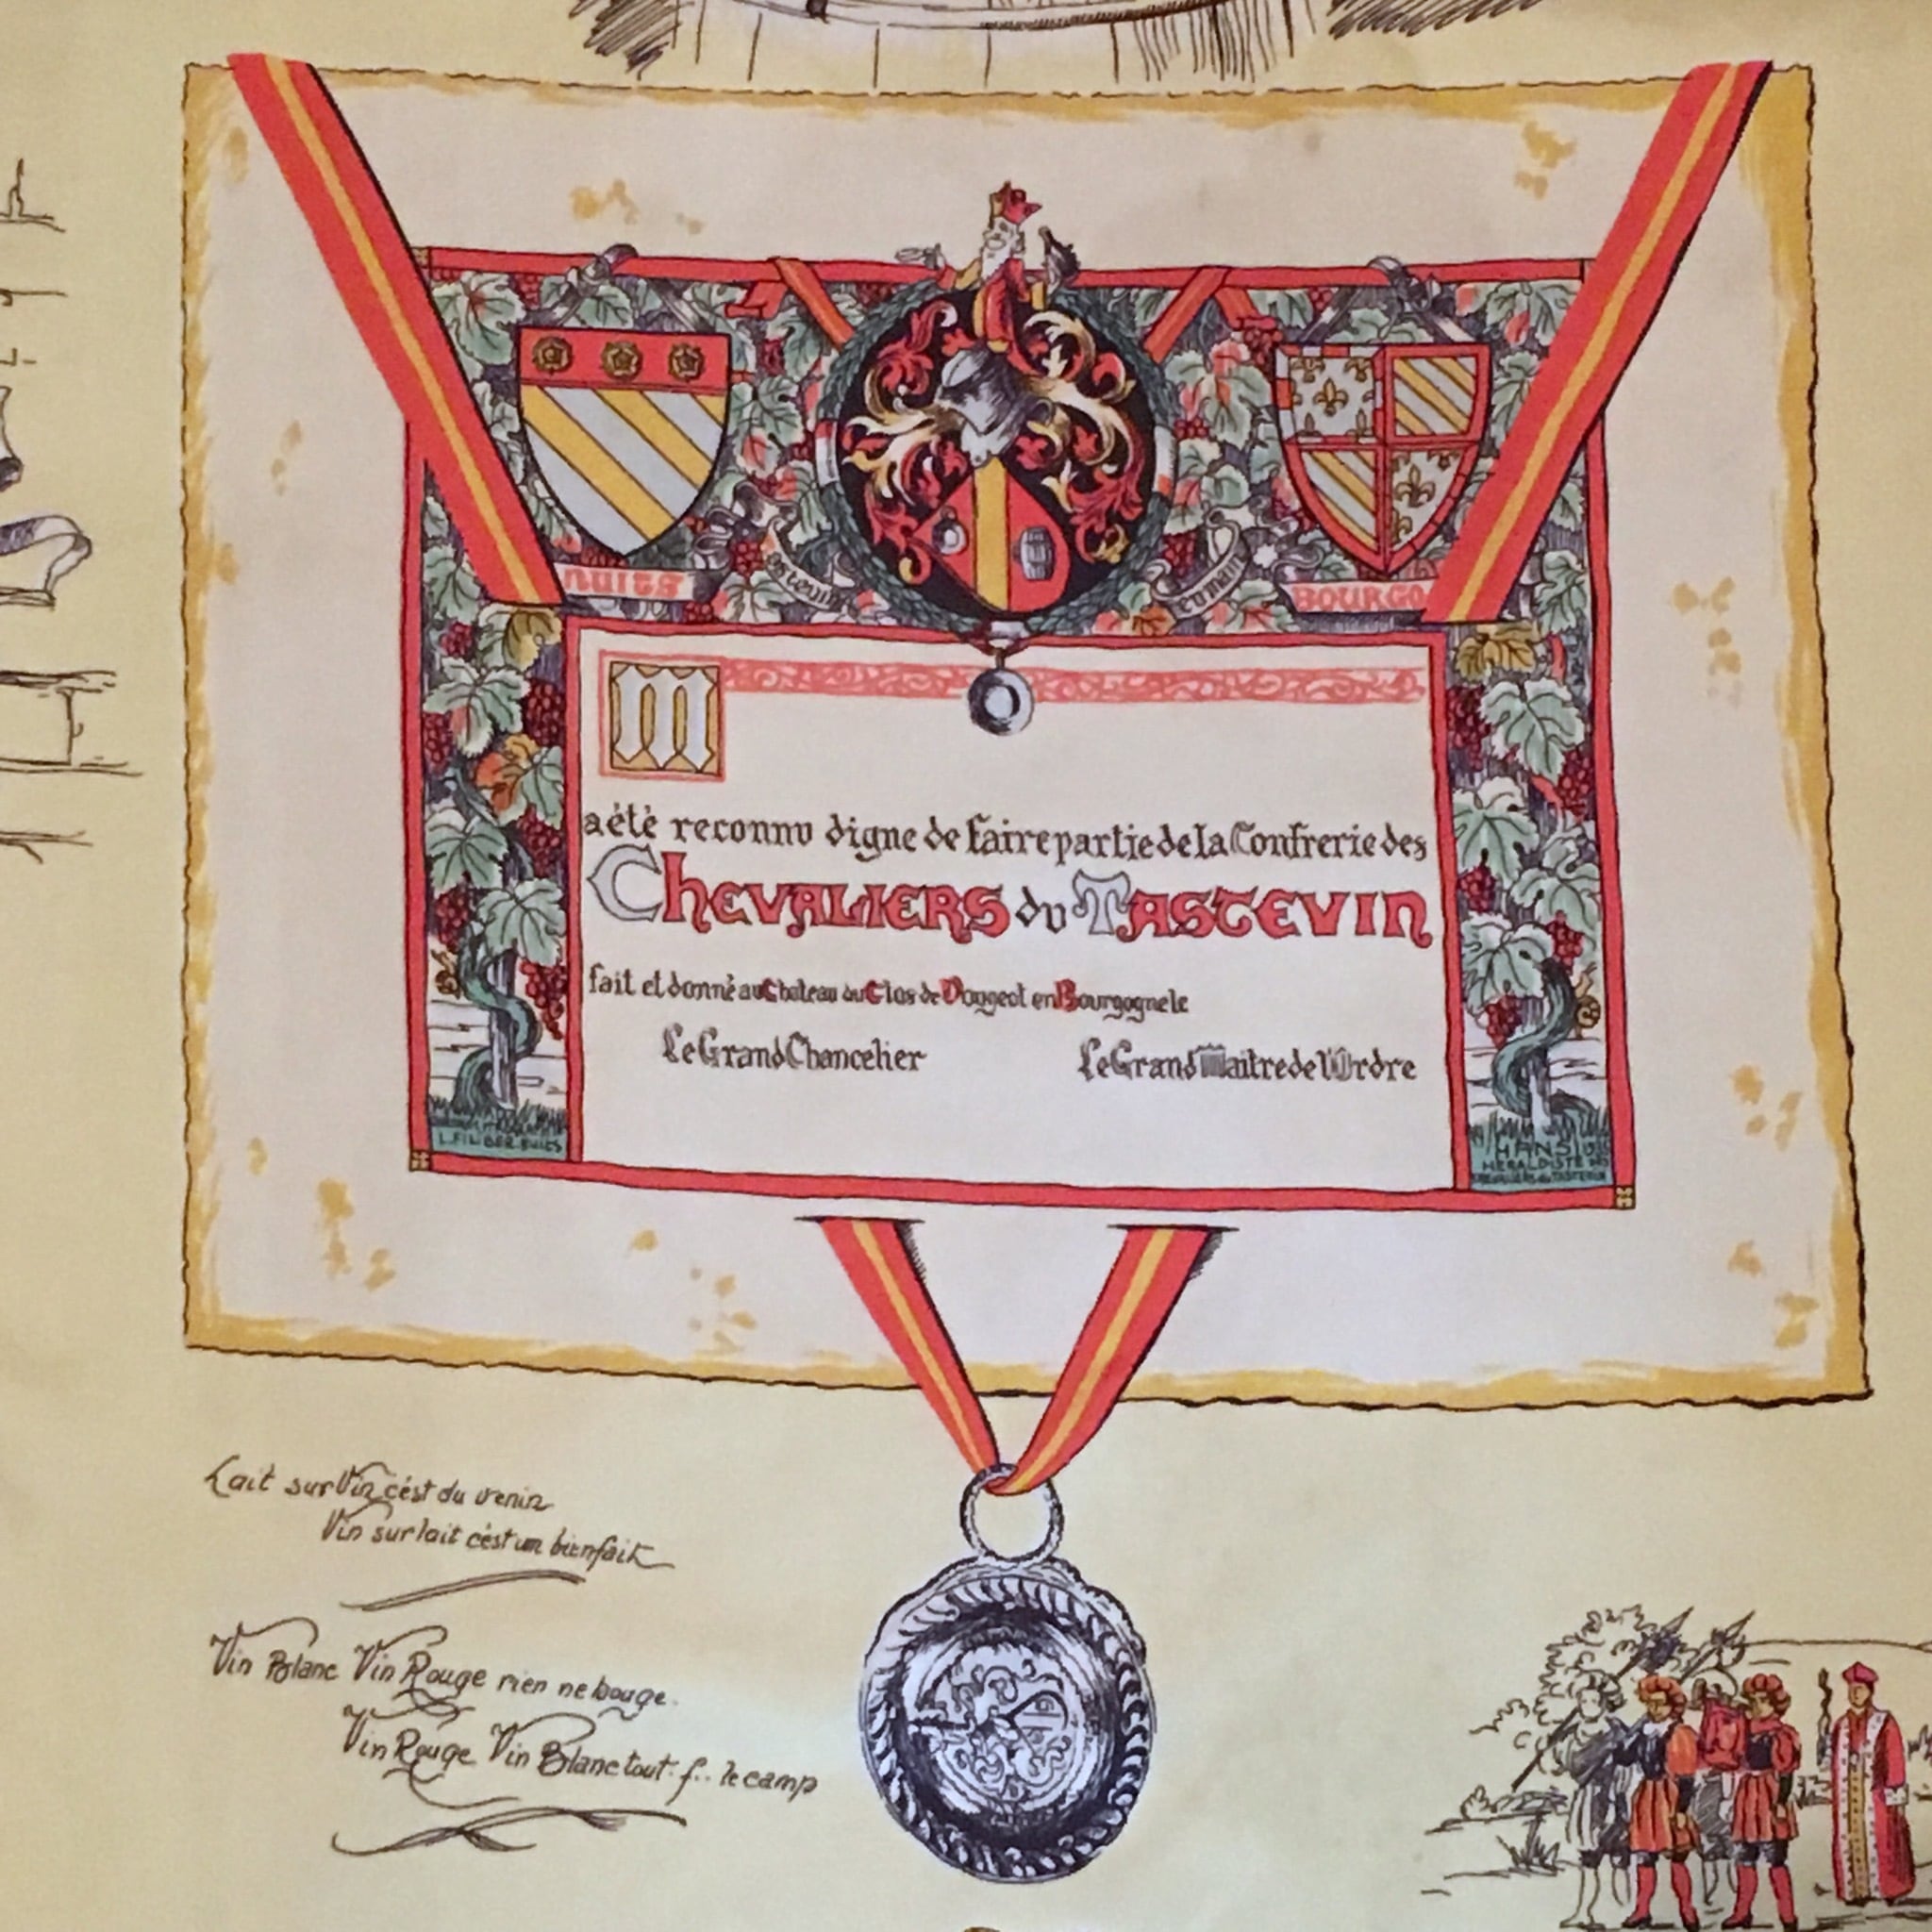 NUITS
BOURGO
M
a étè reconnu digne de faire partie de la Confrerie des
Chevaliers du Tastevin
fait et donné au Chateau du Clos de Vougeot en Bourgogne le
Le Grand Chancelier
Le Grand Maitre de l'Ordre
HANS
HERALDISTE DES
CHEVALIERS du TASTEVIN
Lait sur Vin c'est du venin
Vin sur lait c'est un bienfait
Vin Blanc Vin Rouge rien ne bouge.
Vin Rouge Vin Blanc tout. f.. le camp